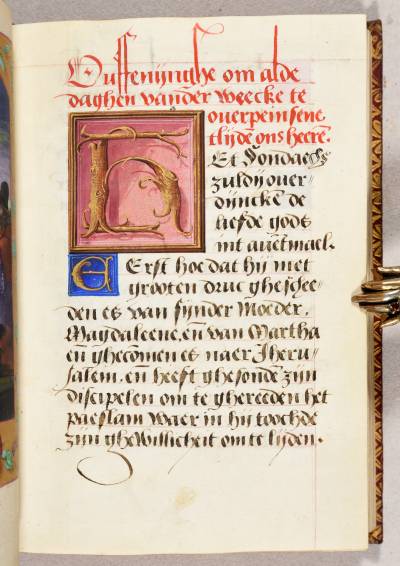 Ouffenijnghe om alde
daghen vander weecke te
ouerpeinsene
tlijdē ons heerē.
HEt Sondaechs
zuldij ouer⸗
dijncken de
liefde gods
int auētmael.
Eerst hoe dat hij met
grooten druc ghescee⸗
den es van sijnder Moeder,
Magdaleene, en̄ van Martha
en̄ ghecomen es naer Jheru⸗
salem, en̄ heeft ghesondē zijn
discipelen om te ghereeden het
paeslam waer in hij toochde
zijn ghewillicheit om te lijden.